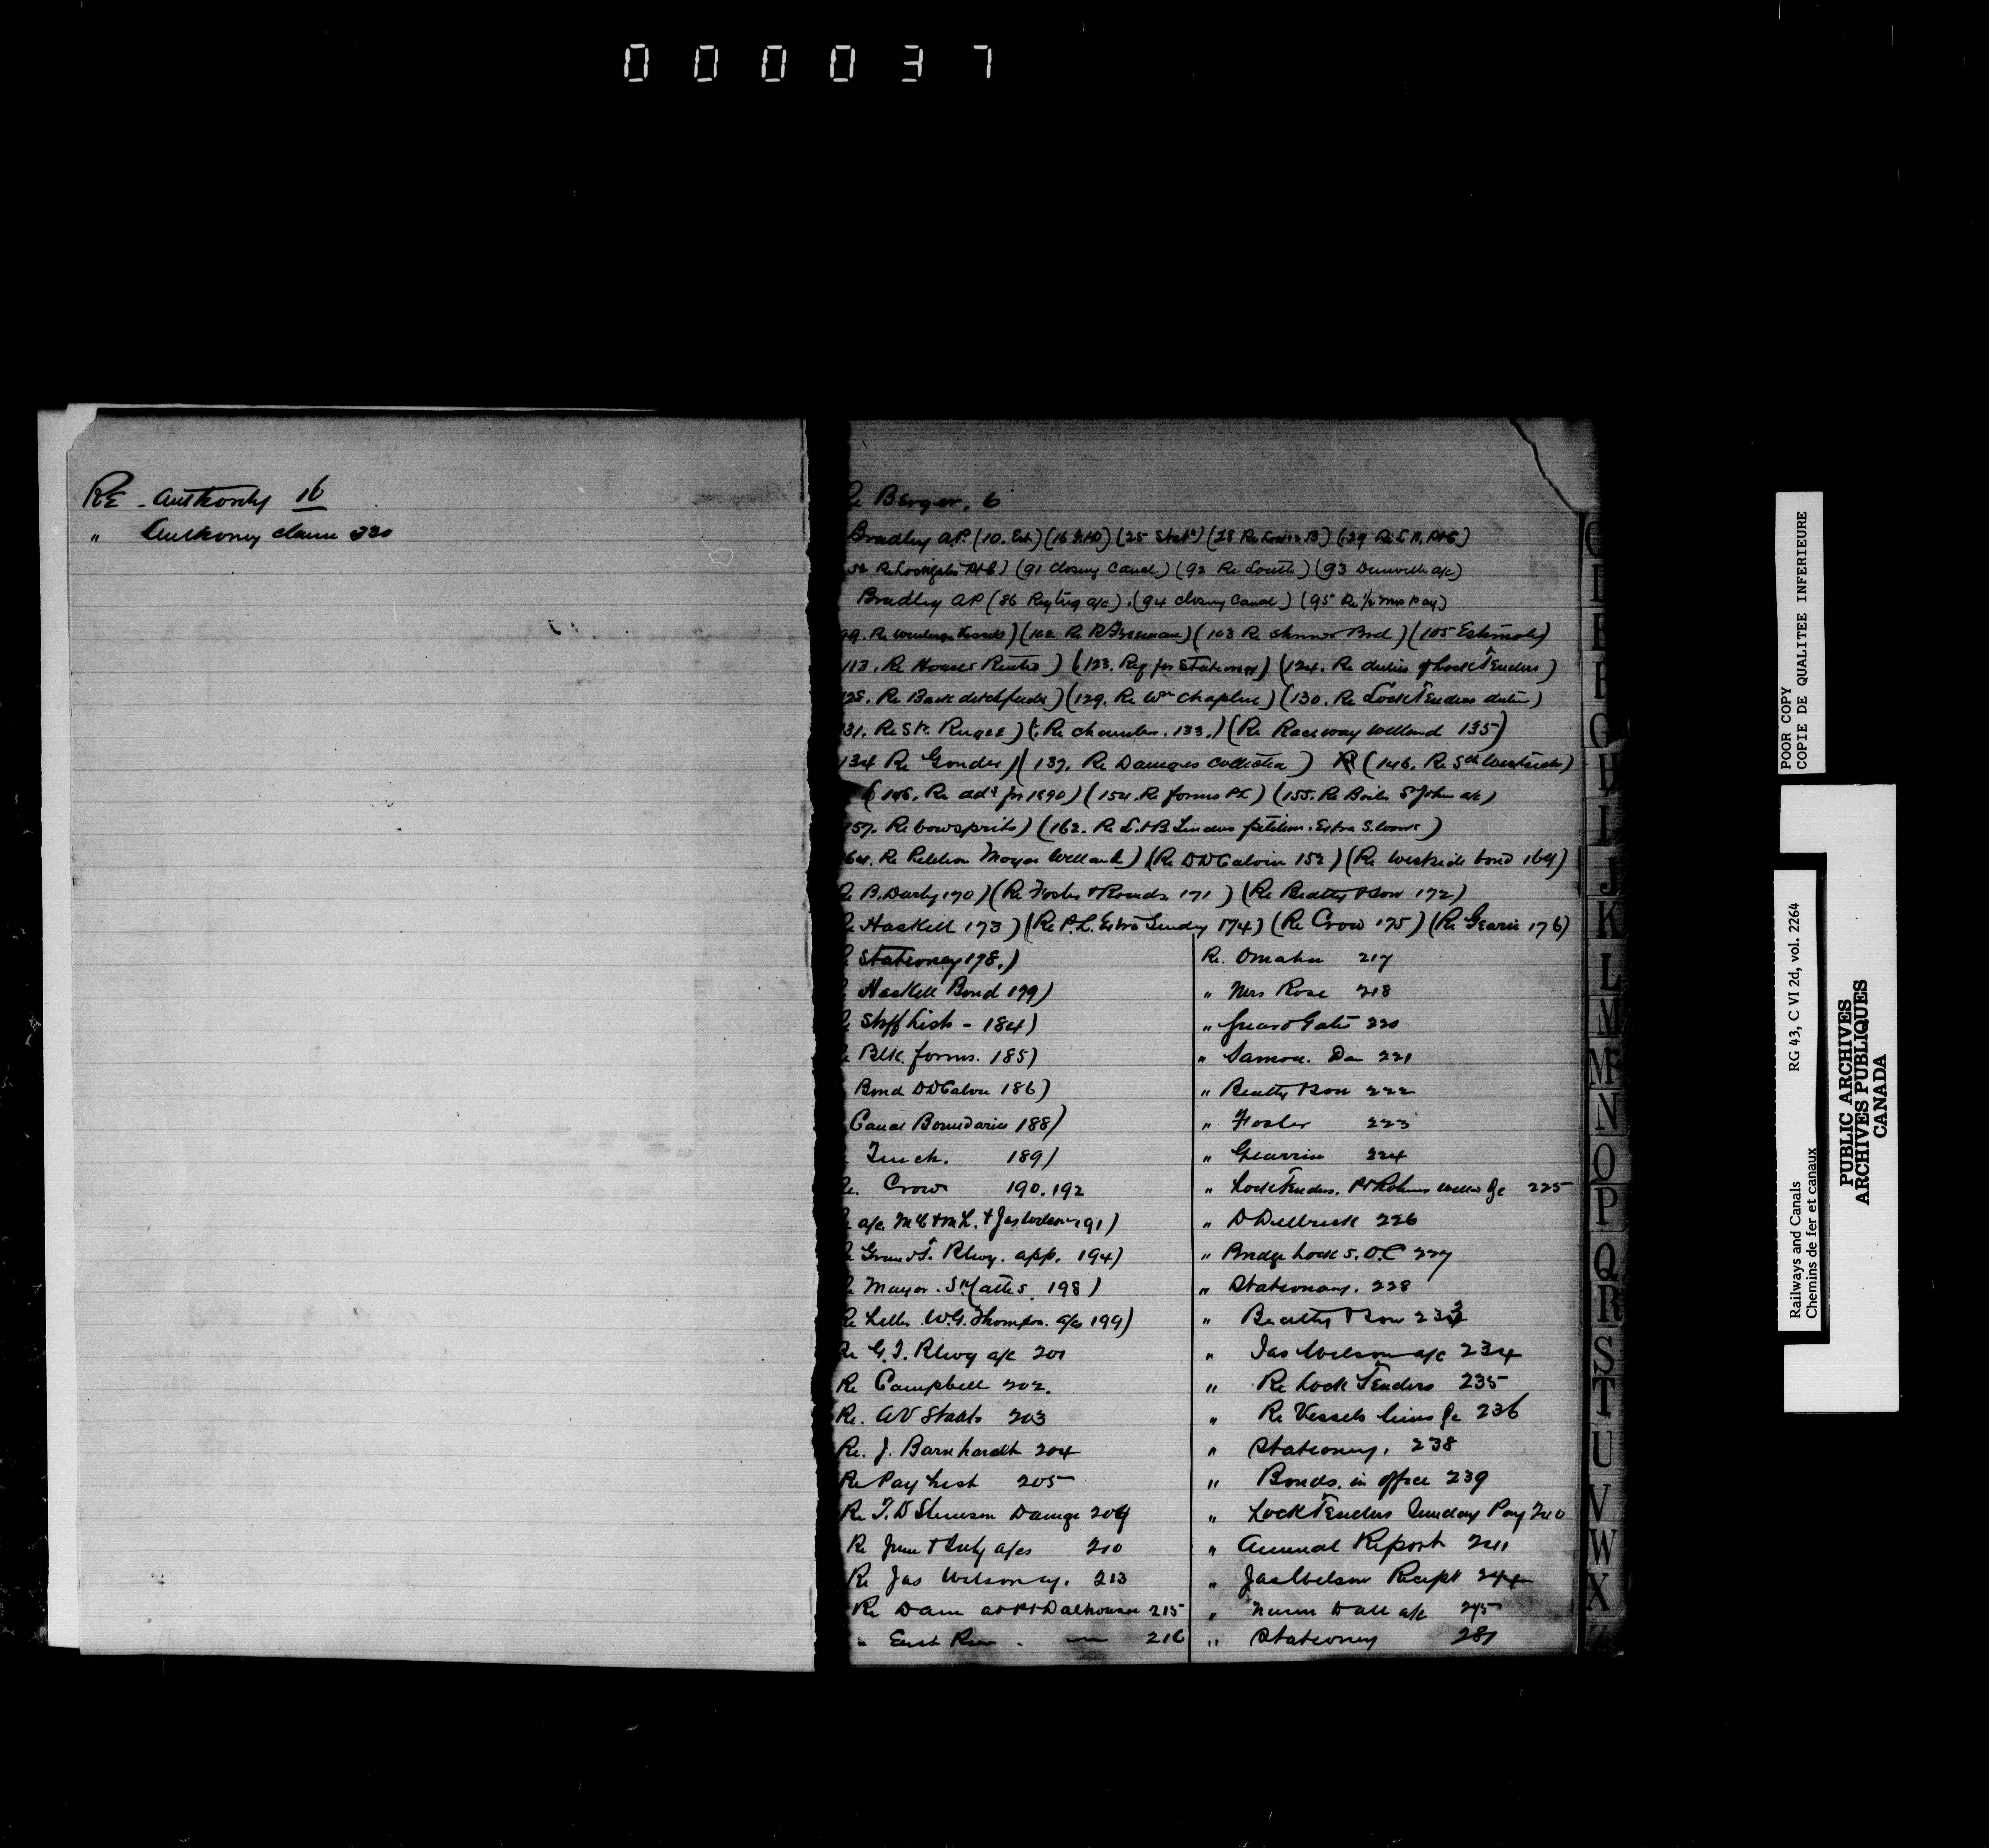 000037
RE. Authority 16
" Anthoney claim 330
Re Berger. 6
Bradley A.P. (10. Est.) (16 ) (25 Statn) (28 Re ) (29 Re )
52 Re (91 closing Canal) (92 Re South) (93 Dunnville a/c)
Bradley AP (86 Reg tug a/c). (94 closing Canal) (95 Re 1/2 mos Pay)
99. Re Vessels) (102 Re R Freeman) (103 Re ) (105 Estimate)
113. Re Houses Rents) (123. Req for Stationery) (124. Re duties of Lock Tenders)
128. Re Back ditch ) (129. Re Wm Chaplin) (130. Re Lock Tenders duties)
131. Re ) (Re chamber. 133.) (Re Raceway Welland 135)
134 Re Gonder) (137. Re Damages collected) (146. Re )
(146. Re ads for 1890) (154. Re forms PL) (155. Re Boiler St John a/c)
157. Re bowsprits) (162. Re L & B Tenders petition. Extra S. work)
164. Re Petition Mayor Welland) (Re DD Calvin 152) (Re Westside bond 164)
Re B. Darby 170) (Re Foster & Rounds. 171) (Re Beatty & Son 172)
Re Haskell 173) (Re P.L. Extra Sunday 174) (Re Crow 175) (Re Gearin 176)
Stationery 178.)
Haskell Bond 179)
Staff List - 184)
Blk. forms. 185)
Bond DD Calvin 186)
Canal Boundaries 188)
189)
Re. Crow 190.192
a/c. & Jas Wilson 191)
Grand T. Rlwy. app. 194)
Mayor. St Catts. 198)
Re Letter W.G. Thompson. a/c 199)
Re G.T. Rlwy a/c 201
Re Campbell 202.
Re. AV Staats 203
Re. J. Barnhardt 204
Re Pay List 205
Re T.D Stimson Damage 209
Re June & July a/cs 210
Re Jas Wilson 213
Re Dam at Pt Dalhousie 215
" East Pier. — 216
Re. Omaha 217
" Mrs Rose 218
" Guard Gate 220
" Samon. Da 221
" Beatty & Son 222
" Foster 223
" Gearrin 224
" Lock Tenders. Pt Robinson 225
" D Dilbrick 226
" Bridge Lock 5. O.C 227
" Stationary. 228
" Beatty & Son 233
" Jas Wilson a/c 234
" Re Lock Tenders 235
" Re Vessels 236
" Stationery. 238
" Bonds. in office 239
" Lock Tenders Sunday Pay 240
" Annual Report 241
" Jas Wilson Receipt 244
" a/c 245
" Stationery 281
C
D
E
F
G
H
I
J
K
L
M
Mc
N
O
P
Q
R
S
T
U
V
W
X
Z
POOR COPY
COPIE DE QUALITEE INFERIEURE
Railways and Canals RG 43, C VI 2d, vol. 2264
Chemins de fer et canaux
PUBLIC ARCHIVES
ARCHIVES PUBLIQUES
CANADA